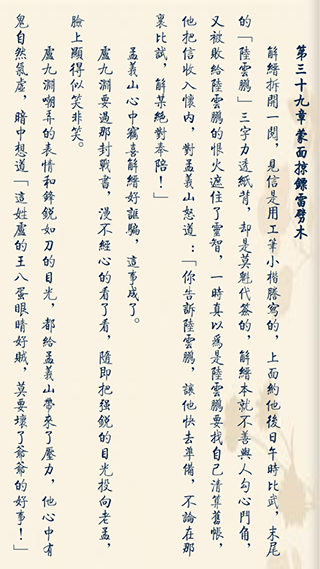 第三十九章蒙面掠鏢雷劈木
解縉拆開一閱，見信是用工筆小楷謄寫的，上面約他後日午時比武，末尾
的「陸雲鵬」三字力透紙背，卻是莫魁代簽的，解縉本就不善與人勾心鬥角，
又被敗給陸雲鵬的恨火遮住了靈智，一時真以爲是陸雲鵬要找自己清算舊帳，
他把信收入懷內，對孟義山怒道：「你告訴陸雲鵬，讓他快去準備，不論在那
裏比試，解某絕對奉陪！」
孟義山心中竊喜解縉好誆騙，這事成了。
盧九淵要過那封戰書，漫不經心的看了看，隨即把强銳的目光投向老孟，
臉上顯得似笑非笑。
盧九淵嘲弄的表情和鋒銳如刀的目光，都給孟義山帶來了壓力，他心中有
鬼自然氣虛，暗中想道「這姓盧的王八蛋眼睛好賊，莫要壞了爺爺的好事！」